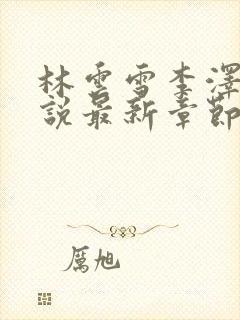 林雲雪李澤
說最新章節
厲旭